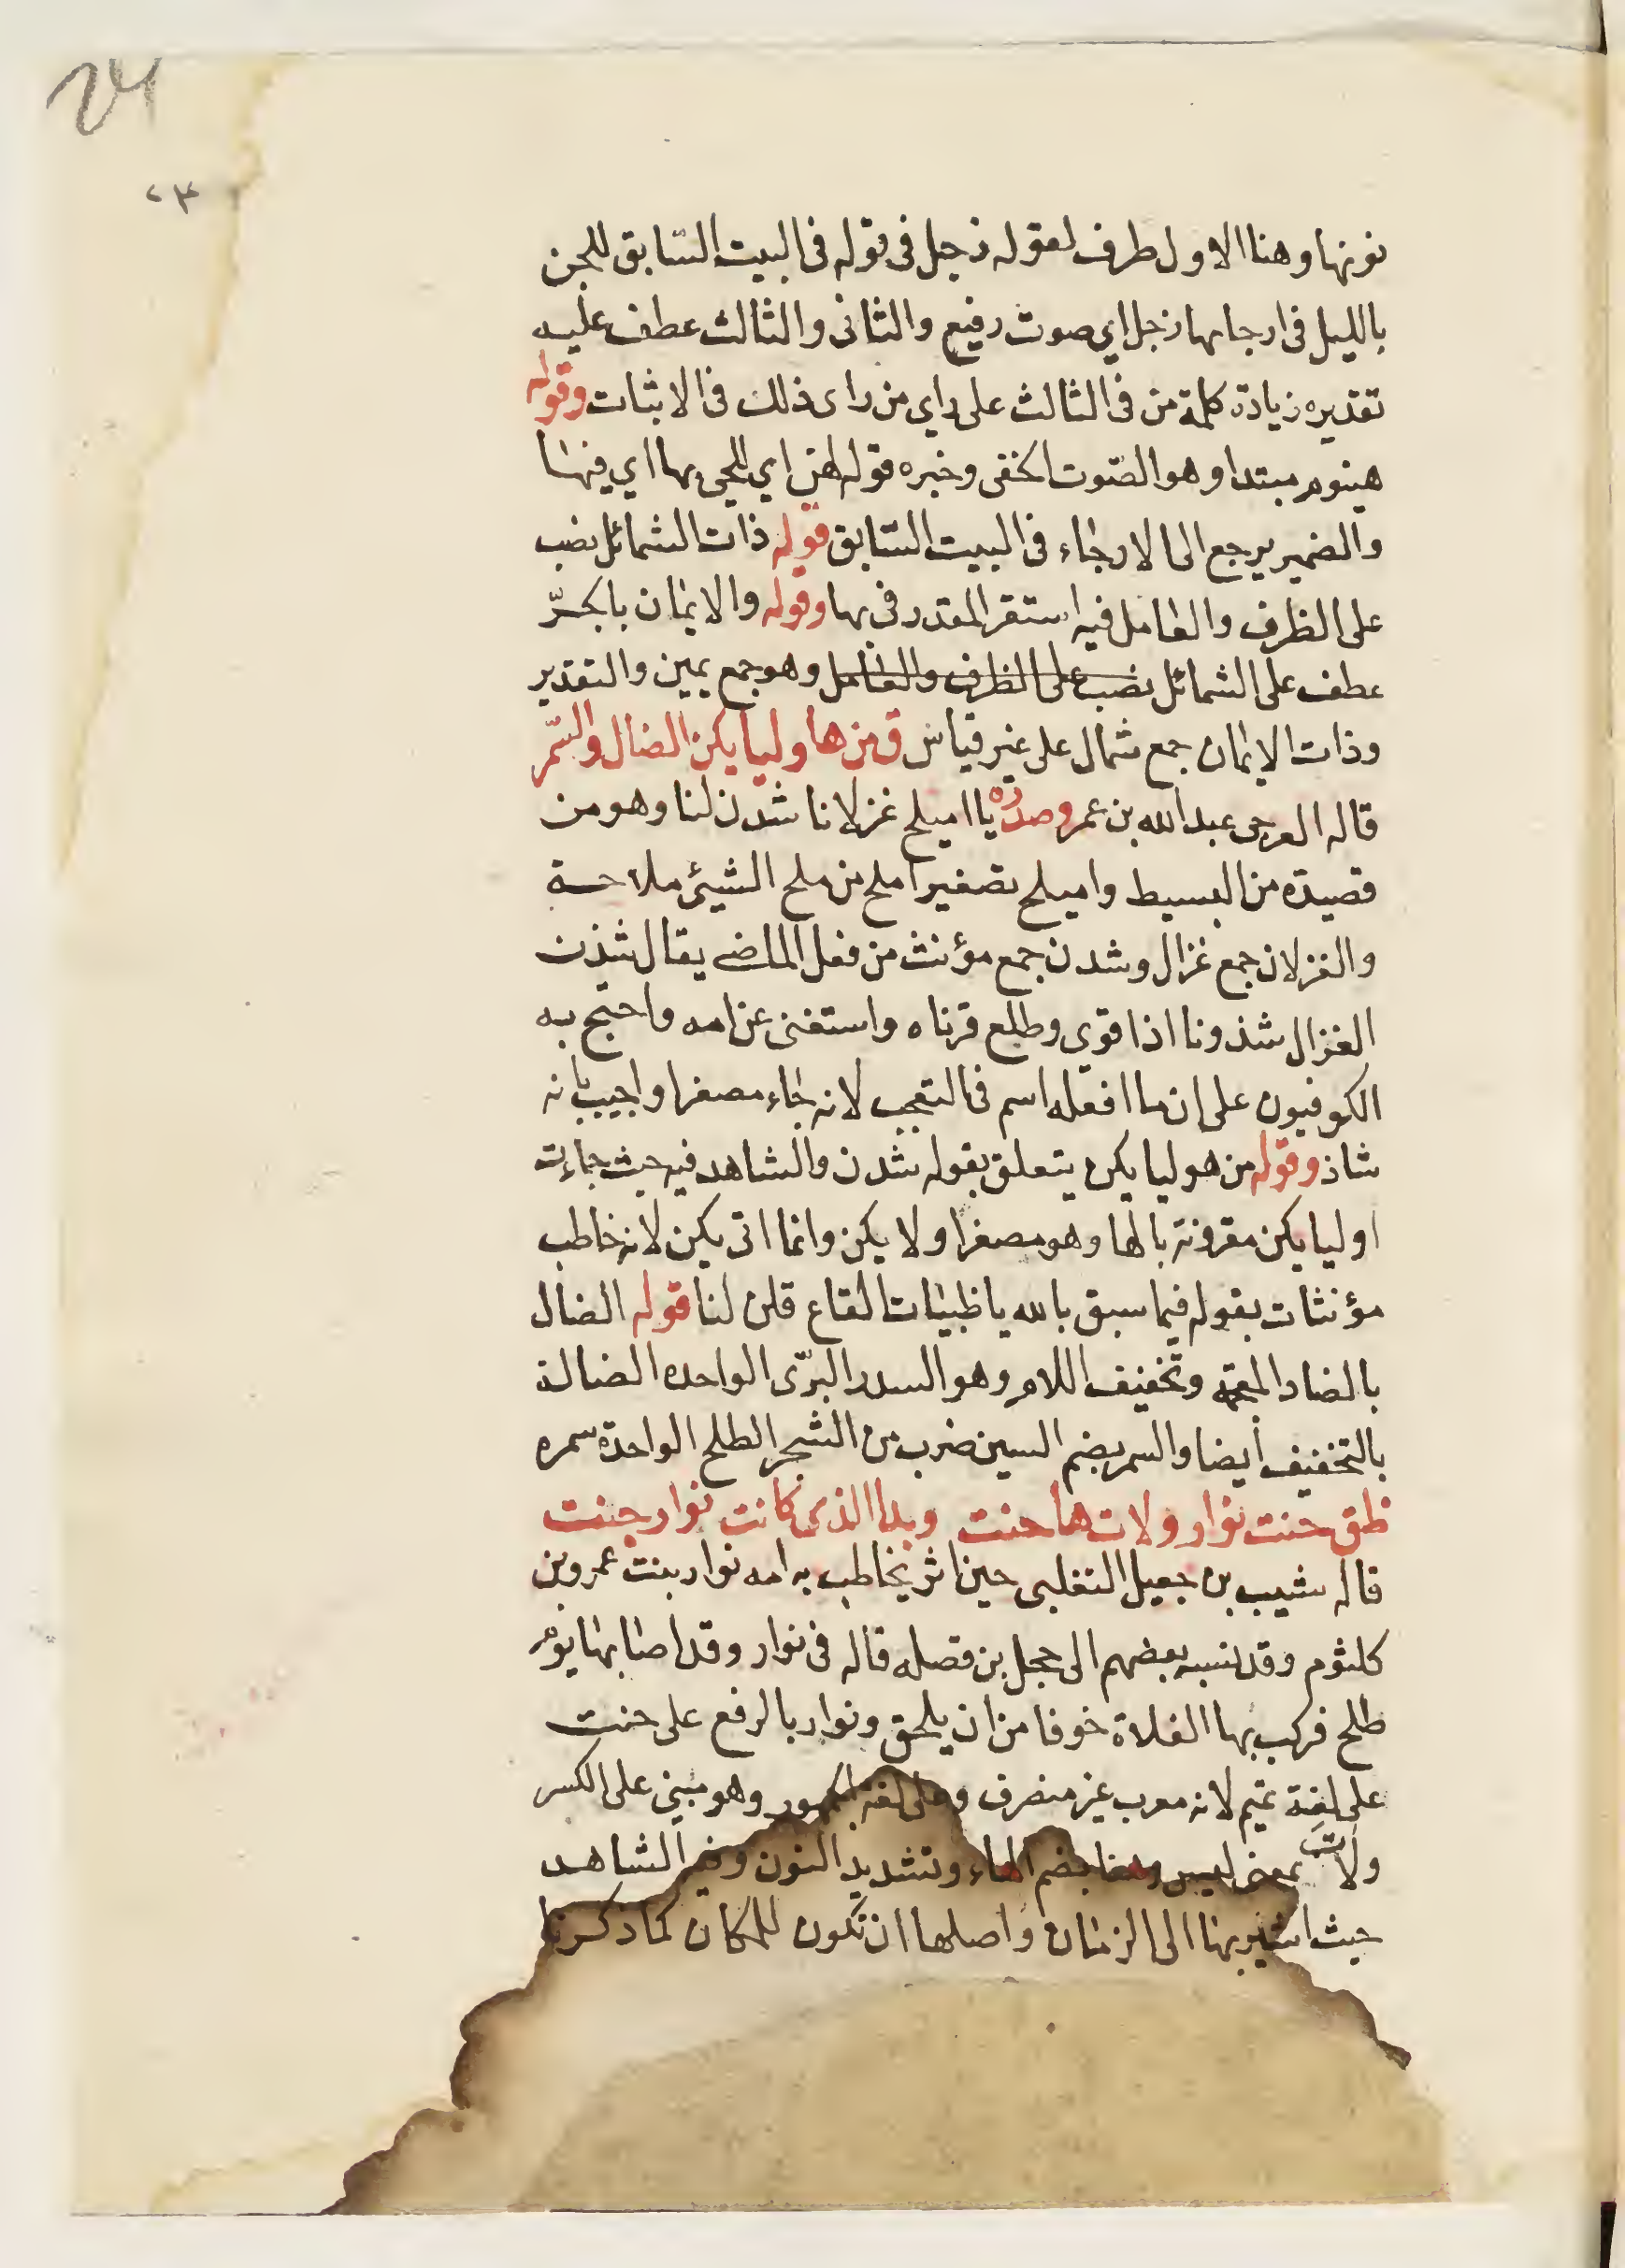 24
٢٣
نونها وهنا الاول ظرف لقوله زجل فى قوله فى البيت السّابق للجن
بالليل فى ارجايها زجل اي صوت رفيع والثانى والثالث عطف عليه
تقديره زيادة كلمة من فى الثالث على راي من راى ذلك فى الاثبات وقوله
هينوم مبتدا وهو الصّوت الخفى وخبره قوله لهن اي للجن بها اي فيها
والضمير يرجع الى الارجاء فى البيت السّابق قوله ذات الشمائل نصب
على الظرف والعامل فيه استقر المقدر فى بها وقوله والايمان بالجرّ
عطف على الشمائل نصب على الظرف والعامل وهو جمع يمين والتقدير
وذات الايمان جمع شمال على غير قياس ق من هاوليايكن الضال والسّمر
قاله العرجى عبد الله بن عمر وصدره يا اميلح غزلانا شدن لنا وهو من
قصيدة من البسيط واميلح تصغير املح من ملح الشيئ ملاحة
والغزلان جمع غزال وشدن جمع مؤنث من فعل الماضى يقال شذن
الغزال شذونا اذا قوي وطلع قرناه واستغنى عن امه واحتج به
الكوفيون على ان ما افعله اسم فى التعجب لانه جاء مصغرا واجيب بانه
شاذ وقوله من هوليايكن يتعلق بقوله شدن والشاهد فيه حيث جاءت
اوليايكن مقرونة بالها وهو مصغر اولايكن وانما اتى بكن لانه خاطب
مؤنثات بقوله فيما سبق بالله يا ظبيات القاع قلن لنا قوله الضال
بالضاد المعجمه وتخفيف اللام وهو السدر البرّى الواحده الضالة
بالتخفيف أيضا والسمر بضم السين ضرب من الشجر الطلح الواحدة سمره
ظق حنت نوار ولات هنا حنت وبدا الذى كانت نوار جنت
قاله شيب بن جعيل التغلبى حين اثر يخاطب به امه نوار بنت عمرو بن
كلثوم وقد نسبه بعضهم الى حجل بن فصله قاله فى نوار وقد اصابها يوم
طلح فركب بها الفلاة خوفا من ان يلحق ونوار بالرفع على حنت
على لغة تميم لانه معرب غير منصرف وعلى لغة الجمهور وهو مبنى على الكسر
ولات بمعنى ليس وهنا بضم الهاء وتشديد النون وفيه الشاهد
حيث اشير بها الى الزمان واصلها ان تكون للمكان كما ذكرنا